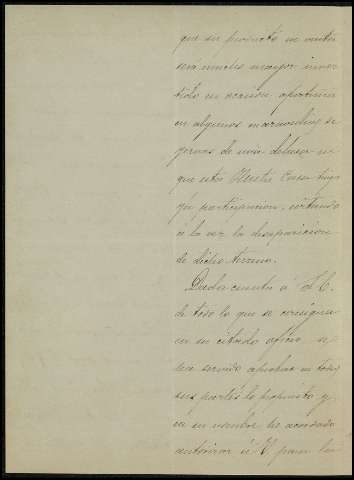 que su producto en venta
será mucho mayor inver
tido en ocasión oportuna
en algunos maravedises
yervas de una dehesa en
que esta Ilustre Casa tenga
participacion, evitando
á la vez la desaparicion
de dicho terreno.
Dada cuenta á S. E.
de todo lo que se consigna
en su citado oficio, se
ha servido aprobar en todas
sus partes lo propuesto y
en su virtud ha acordado
autorizar á V. para la